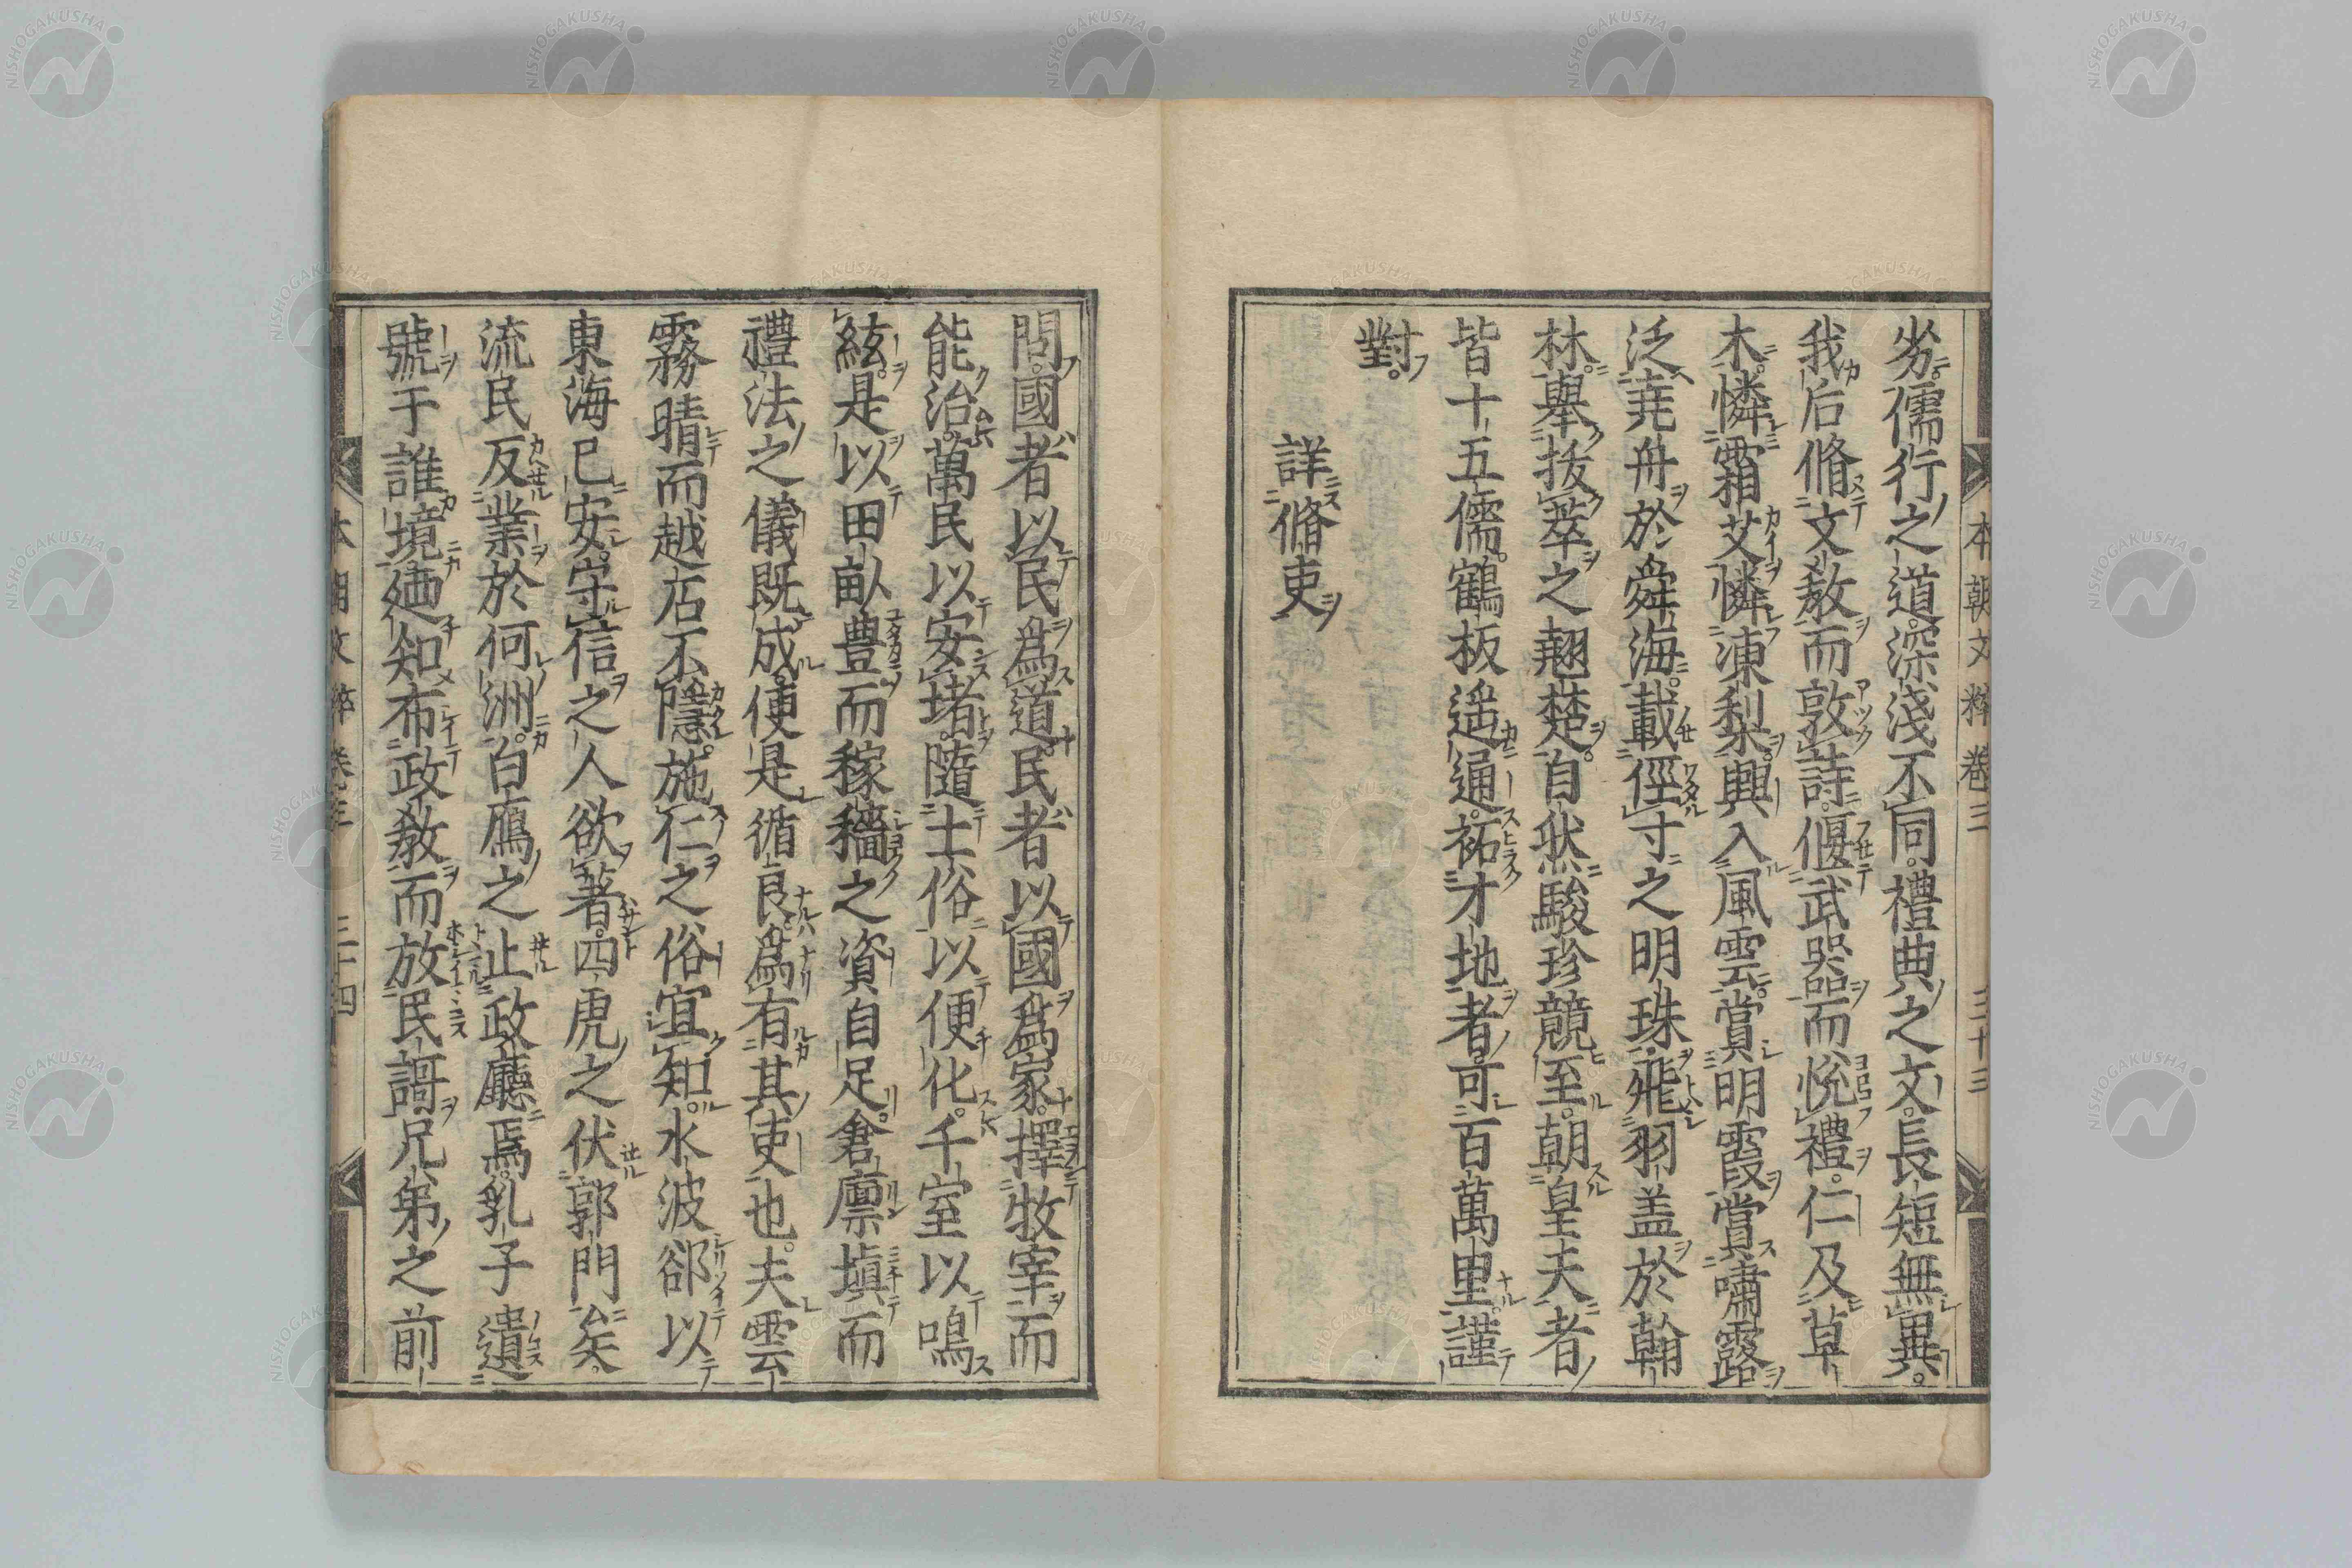 本朝文粹卷三 三十三
劣。儒行之道。深淺不同。禮典之文。長短無異。
我后脩文敎而敦詩。偃武器而悅禮。仁及草
木。憐霜艾憐凍梨。興入風雲。賞明霞賞嘯露
泛堯舟於舜海。載徑寸之明珠。飛羽盖於翰
林。擧拔萃之翹楚。自然駿珍競至。朝皇夫者
皆十五儒。鶴板遥通。祏才地者。可百萬里。謹
對。
詳脩吏
問。國者以民爲道。民者以國爲家。擇牧宰而
能治。萬民以安堵。隨土俗以便化。千室以鳴
絃。是以田畝豊而稼穡之資自足。倉廪塡而
禮法之儀既成。便是循良。爲有其吏也。夫雲
霧晴而越石不隱。施仁之俗宜知。水波郤以
東海已安。守信之人欲著。四虎之伏郭門矣。
流民反業於何洲。白鷹之止政廳焉。乳子遺
號于誰境。廼知布政敎而放民謌兄弟之前
本朝文粹卷三 三十四